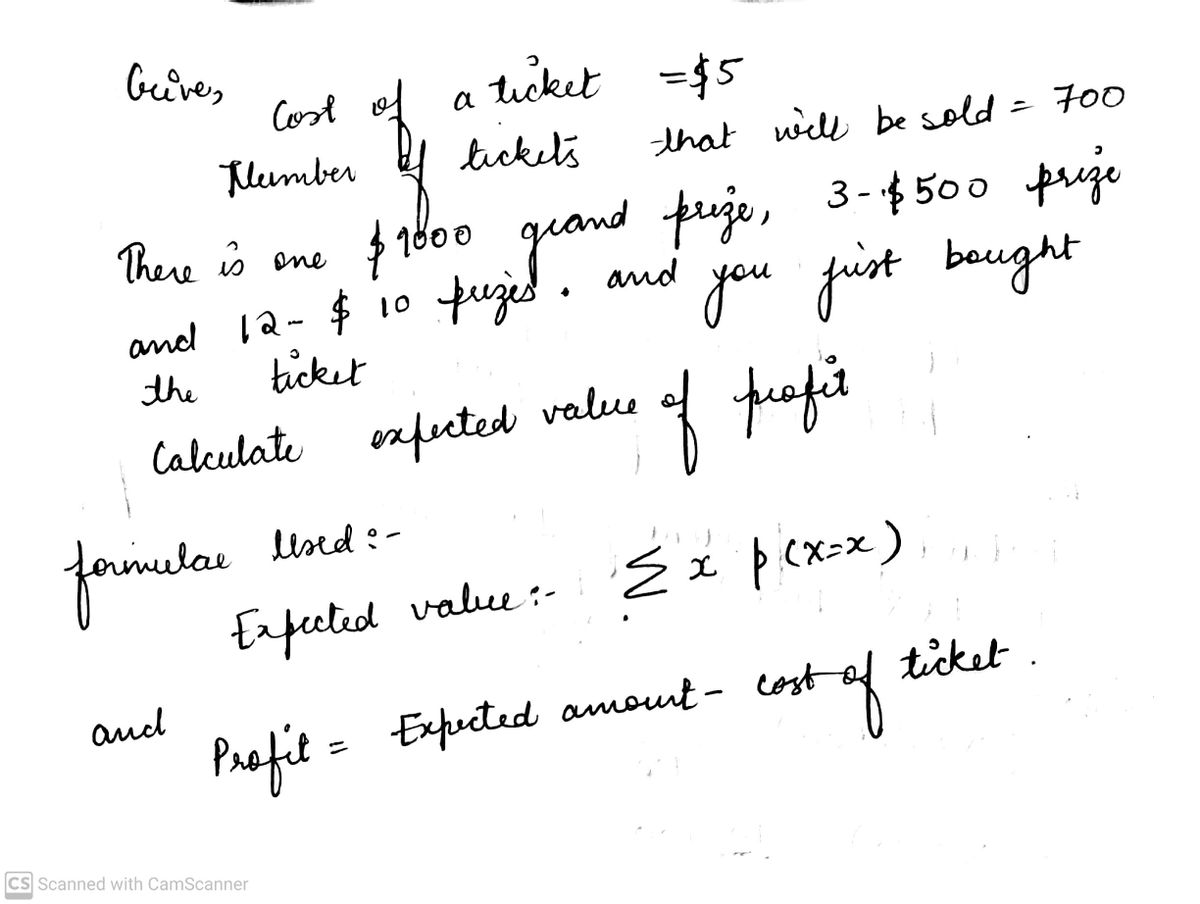 Give,
Cost of a ticket = $5
Number of tickets that will be sold = 700
There is one $ 1000 grand prize, 3-$500 prize
and 12- $ 10 prizes. and you just bought
the ticket
Calculate expected value of profit
formulae Used :-
Expected value :- Σ x p(X=x)
and Profit = Expected amount - cost of ticket.
CS Scanned with CamScanner